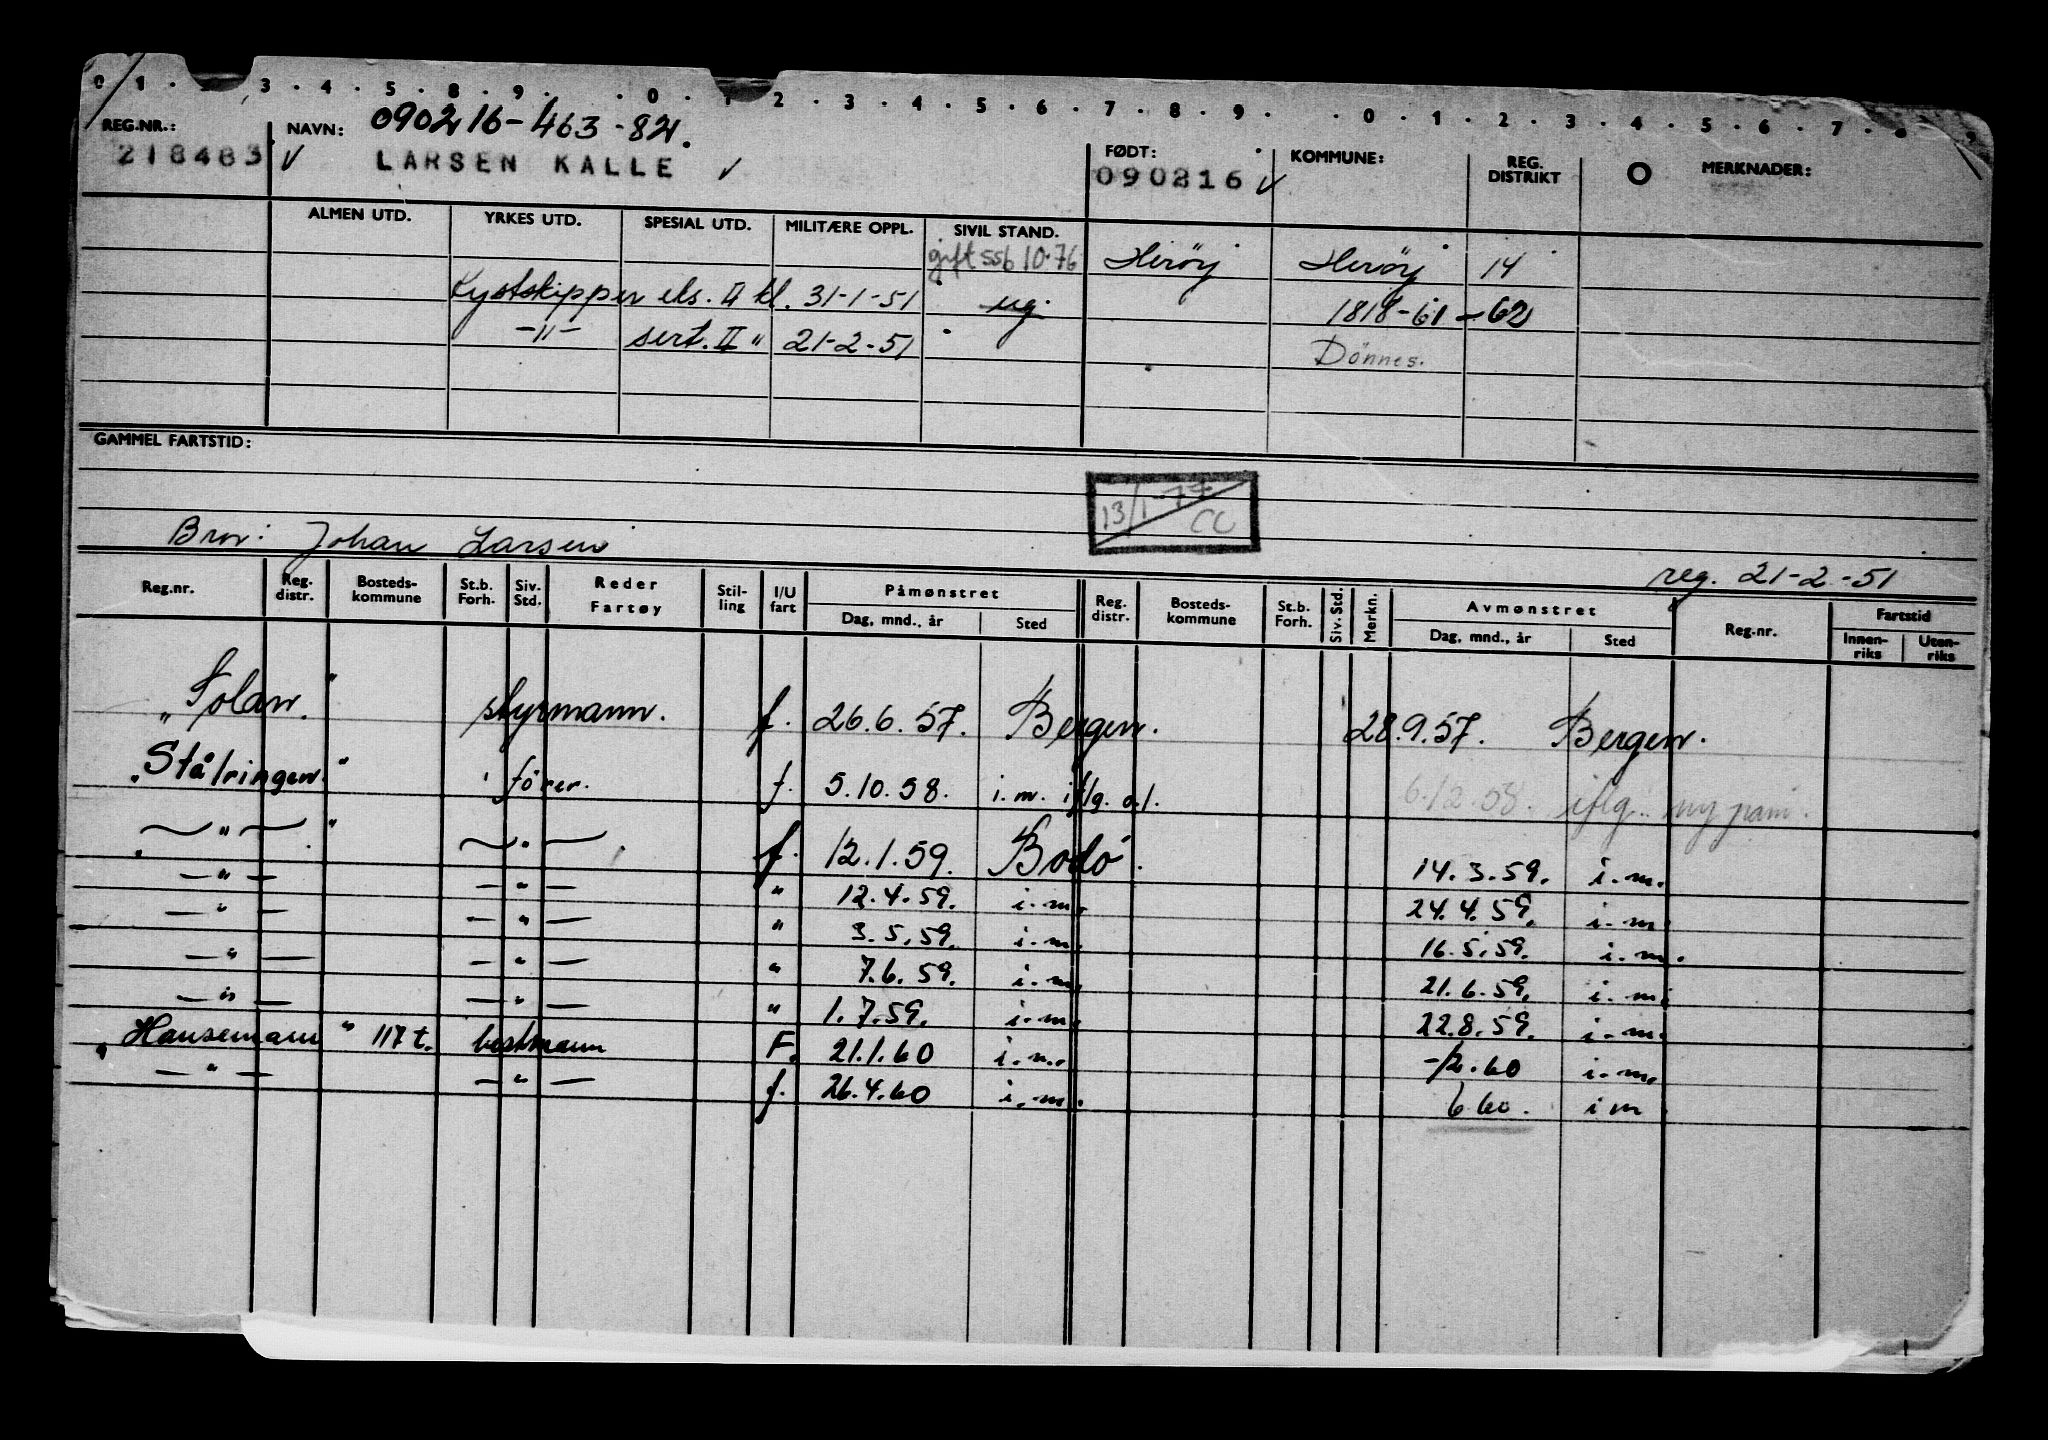 0 1 . 3 . 4 . 5 . 8 . 9 . . 0 . 1 2 . 3 . 4 . 5 . 6 . 7 . 8 . 9 . . 0 . 1 . 2 . 3 . 4 . 5 . 6 . 7 . 8 . 9
REG.NR.: NAVN: 090216-463-82. FØDT: KOMMUNE: REG. DISTRIKT O MERKNADER:
218483 ✓ LARSEN KALLE ✓ 090216 ✓
ALMEN UTD. YRKES UTD. SPESIAL UTD. MILITÆRE OPPL. SIVIL STAND.
gift ssb 10.76 Herøy Herøy 14
Kystskipper eks. II kl. 31-1-51 ug. 1818-61-62
-"- sert. II " 21-2-51 Dönnes.
GAMMEL FARTSTID:
13/1-77 CC
Bror: Johan Larsen
reg. 21-2-51
Reg.nr. Reg. distr. Bosteds-kommune St.b. Forh. Siv. Std. Reder Fartøy Stil-ling I/U fart Påmønstret Dag, mnd., år Sted Reg. distr. Bosteds-kommune St.b. Forh. Siv. Std. Merkn. Avmønstret Dag, mnd., år Sted Reg.nr. Fartstid Innen-riks Uten-riks
"Solan" styrmann. f. 26.6.57. Bergen. 28.9.57. Bergen.
"Stålringen" förer. f. 5.10.58. i.m. iflg. o.l. 6.12.58. iflg. ny påm.
— " — " — " — f. 12.1.59. Bodö. 14.3.59. i.m.
— " — — " — " 12.4.59. i.m. 24.4.59. i.m.
— " — — " — " 3.5.59. i.m. 16.5.59. i.m.
— " — — " — " 7.6.59. i.m. 21.6.59. i.m.
— " — — " — " 1.7.59. i.m. 22.8.59. i.m.
"Hansemann" 117 t. bestmann F. 21.1.60 i.m. -/2.60 i.m.
— " — — " — f. 26.4.60 i.m. 6.60. i m